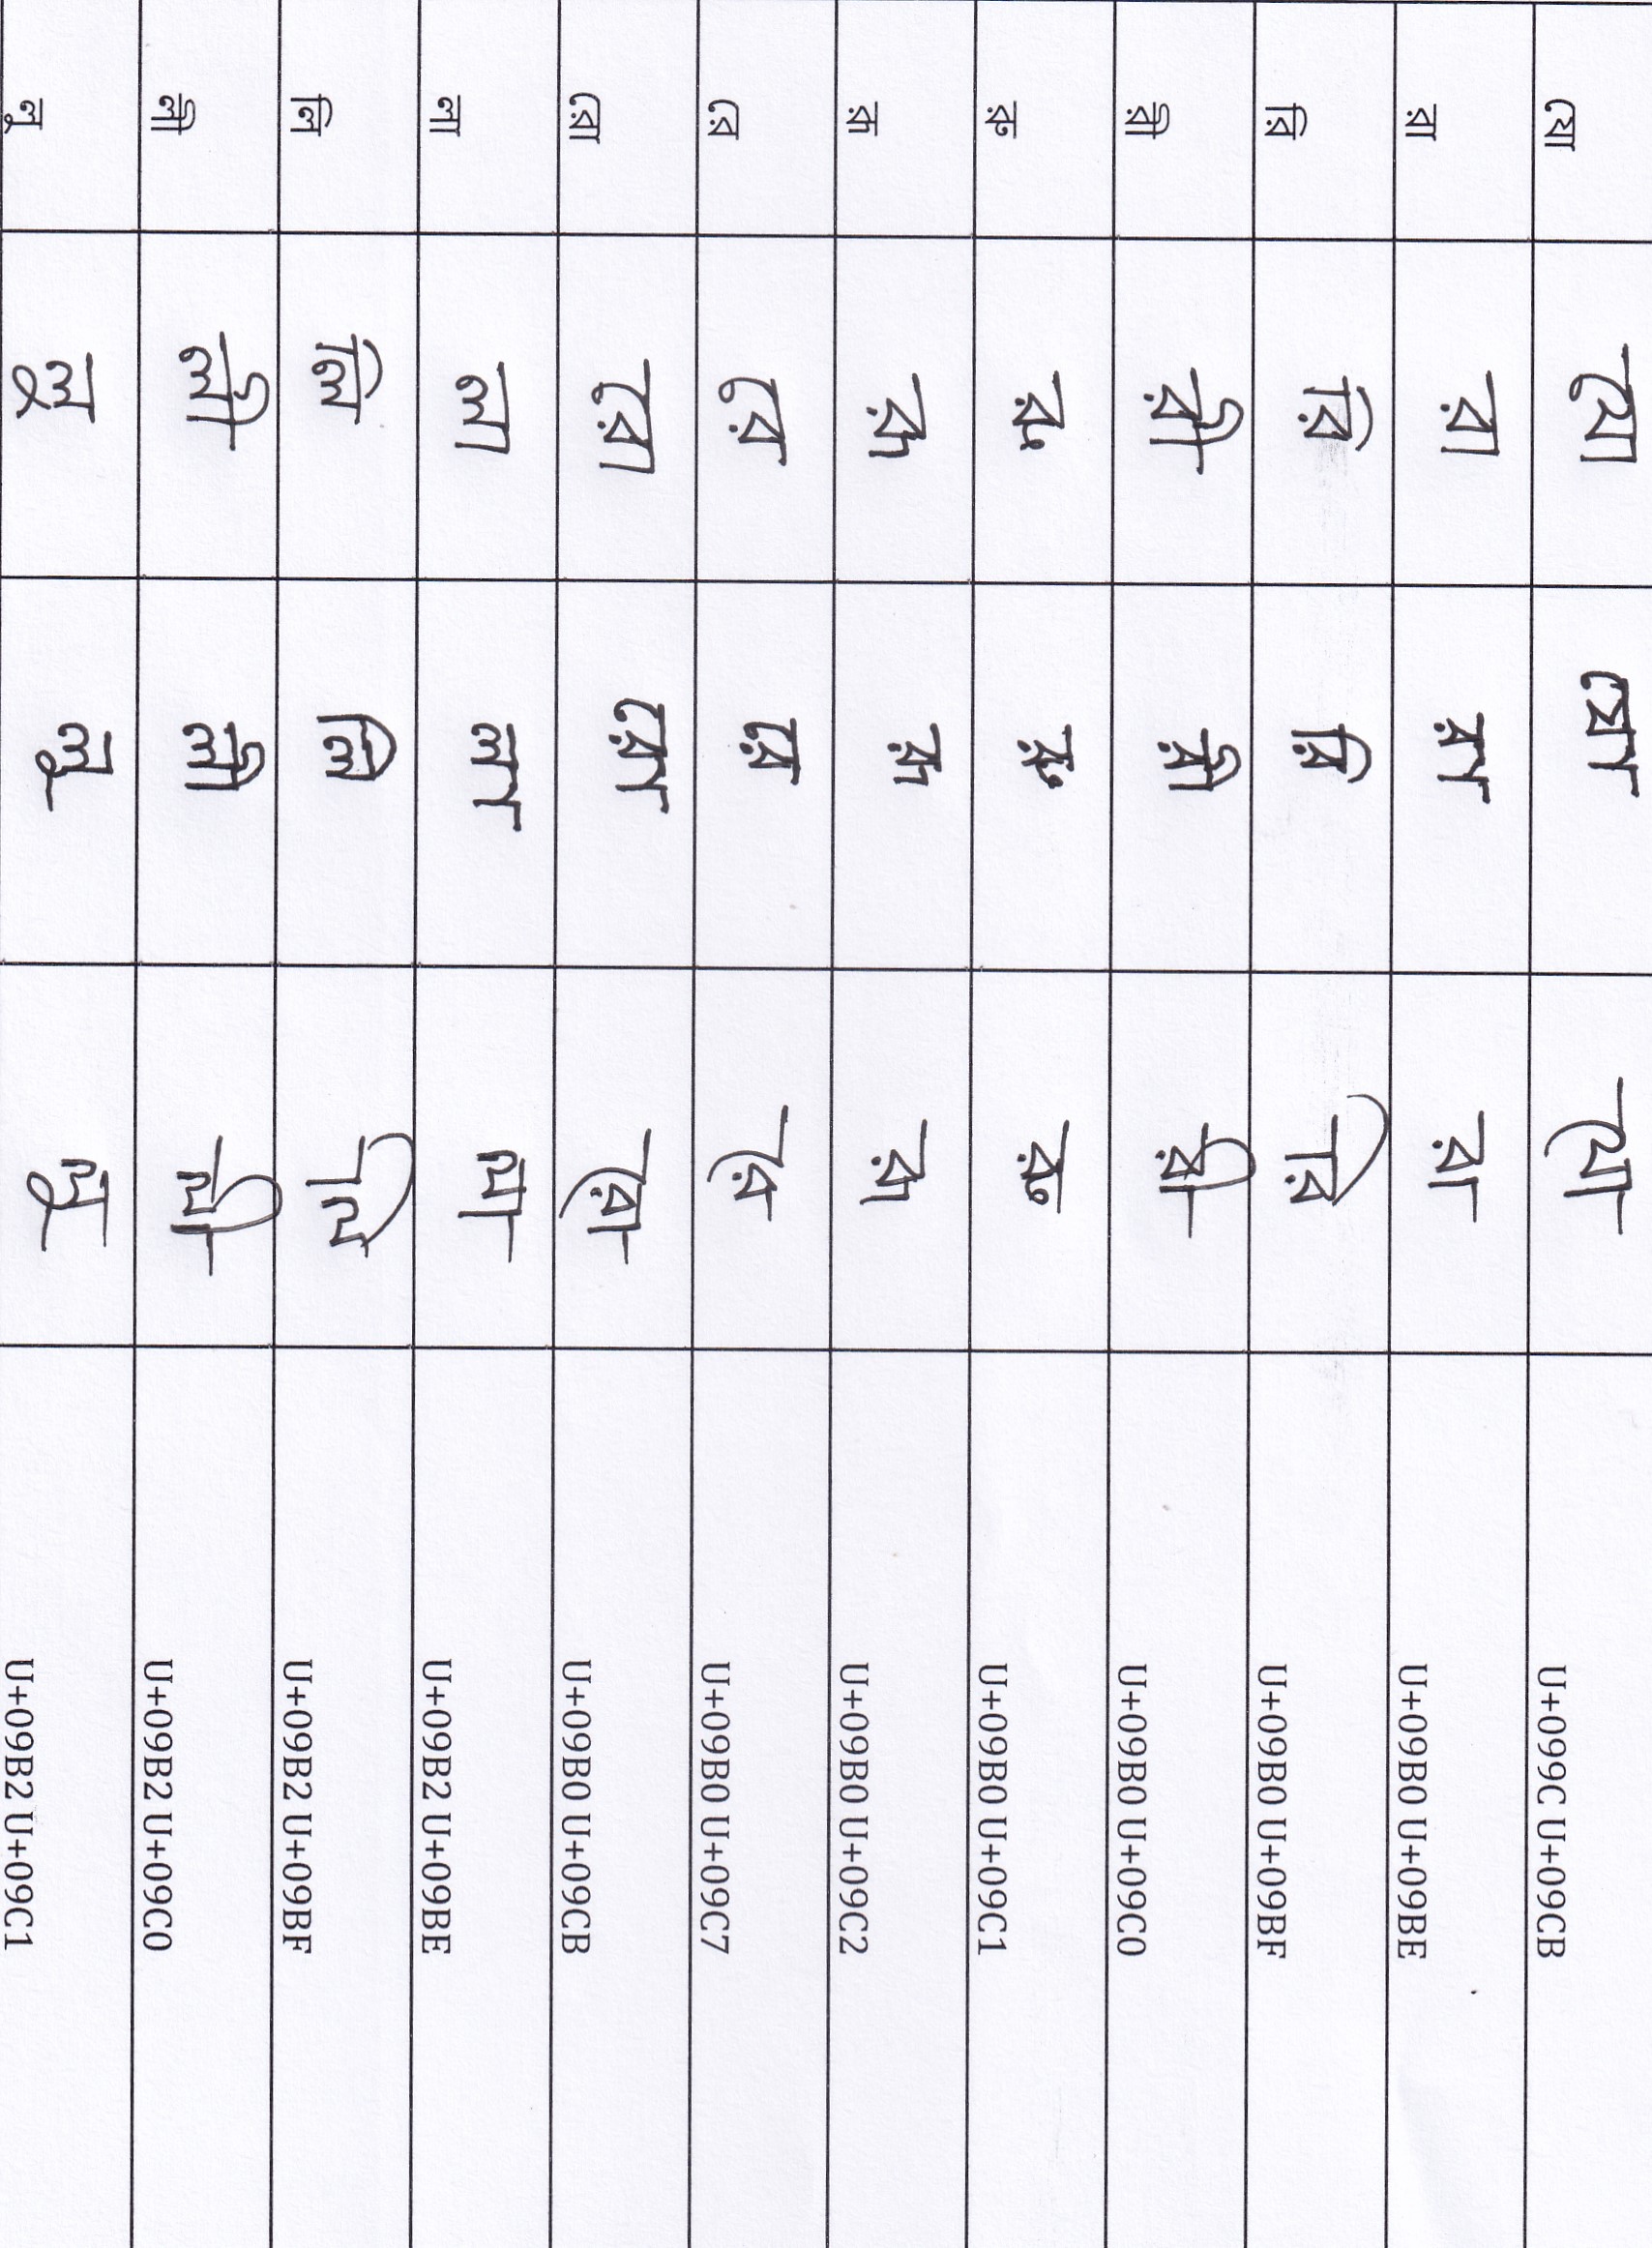 যো যো যো যো U+099C U+09CB
রা রা রা রা U+09B0 U+09BE
রি রি রি রি U+09B0 U+09BF
রী রী রী রী U+09B0 U+09C0
রু রু রু রু U+09B0 U+09C1
রূ রূ রূ রূ U+09B0 U+09C2
রে রে রে রে U+09B0 U+09C7
রো রো রো রো U+09B0 U+09CB
লা লা লা লা U+09B2 U+09BE
লি লি লি লি U+09B2 U+09BF
লী লী লী লী U+09B2 U+09C0
লু লু লু লু U+09B2 U+09C1